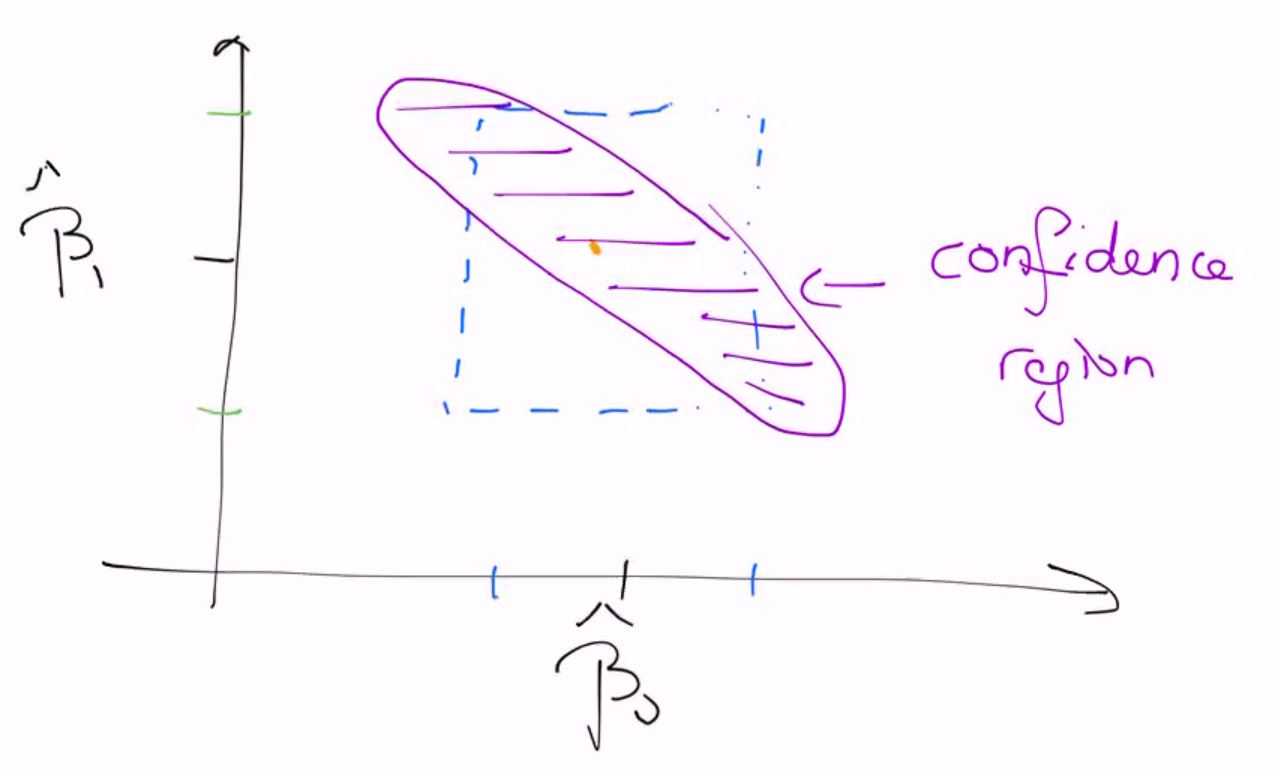 β̂₁
confidence
region
β̂₀